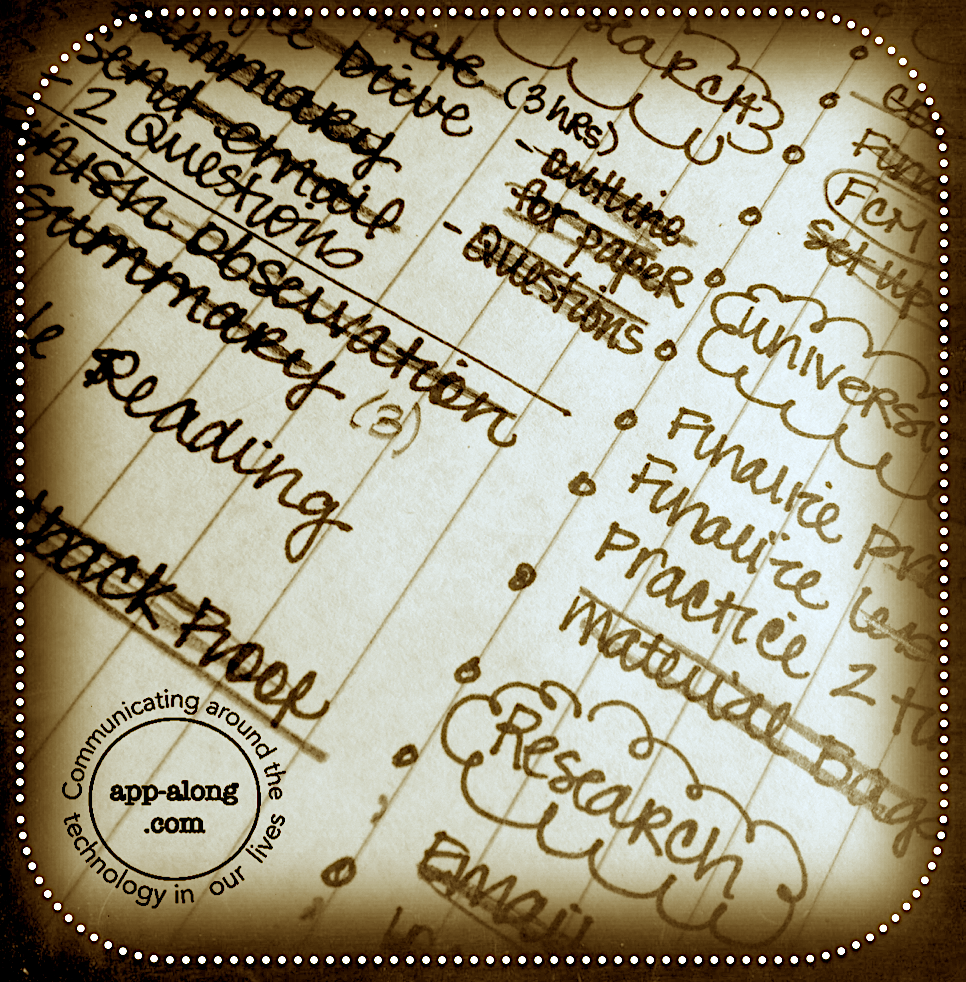 Drive
Summary
Send email
- 2 Questions
Finish Observation
Summary
(3)
Reading
Proof
(3 HRS)
- outline
for paper
- Questions
FCM
set up
Finalize
Finalize
Practice 2
Material Bag
Research
Email
Communicating around the
technology in our lives
app-along
.com